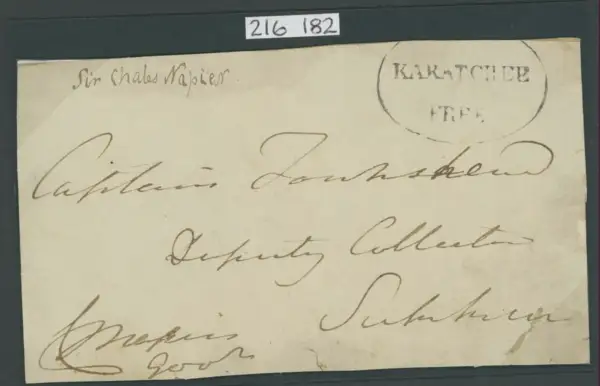 216 182
Sir Chales Napier
KARATCHEE
FREE
Captain Townshend
Deputy Collector
Sukkur
CNapier
Govr